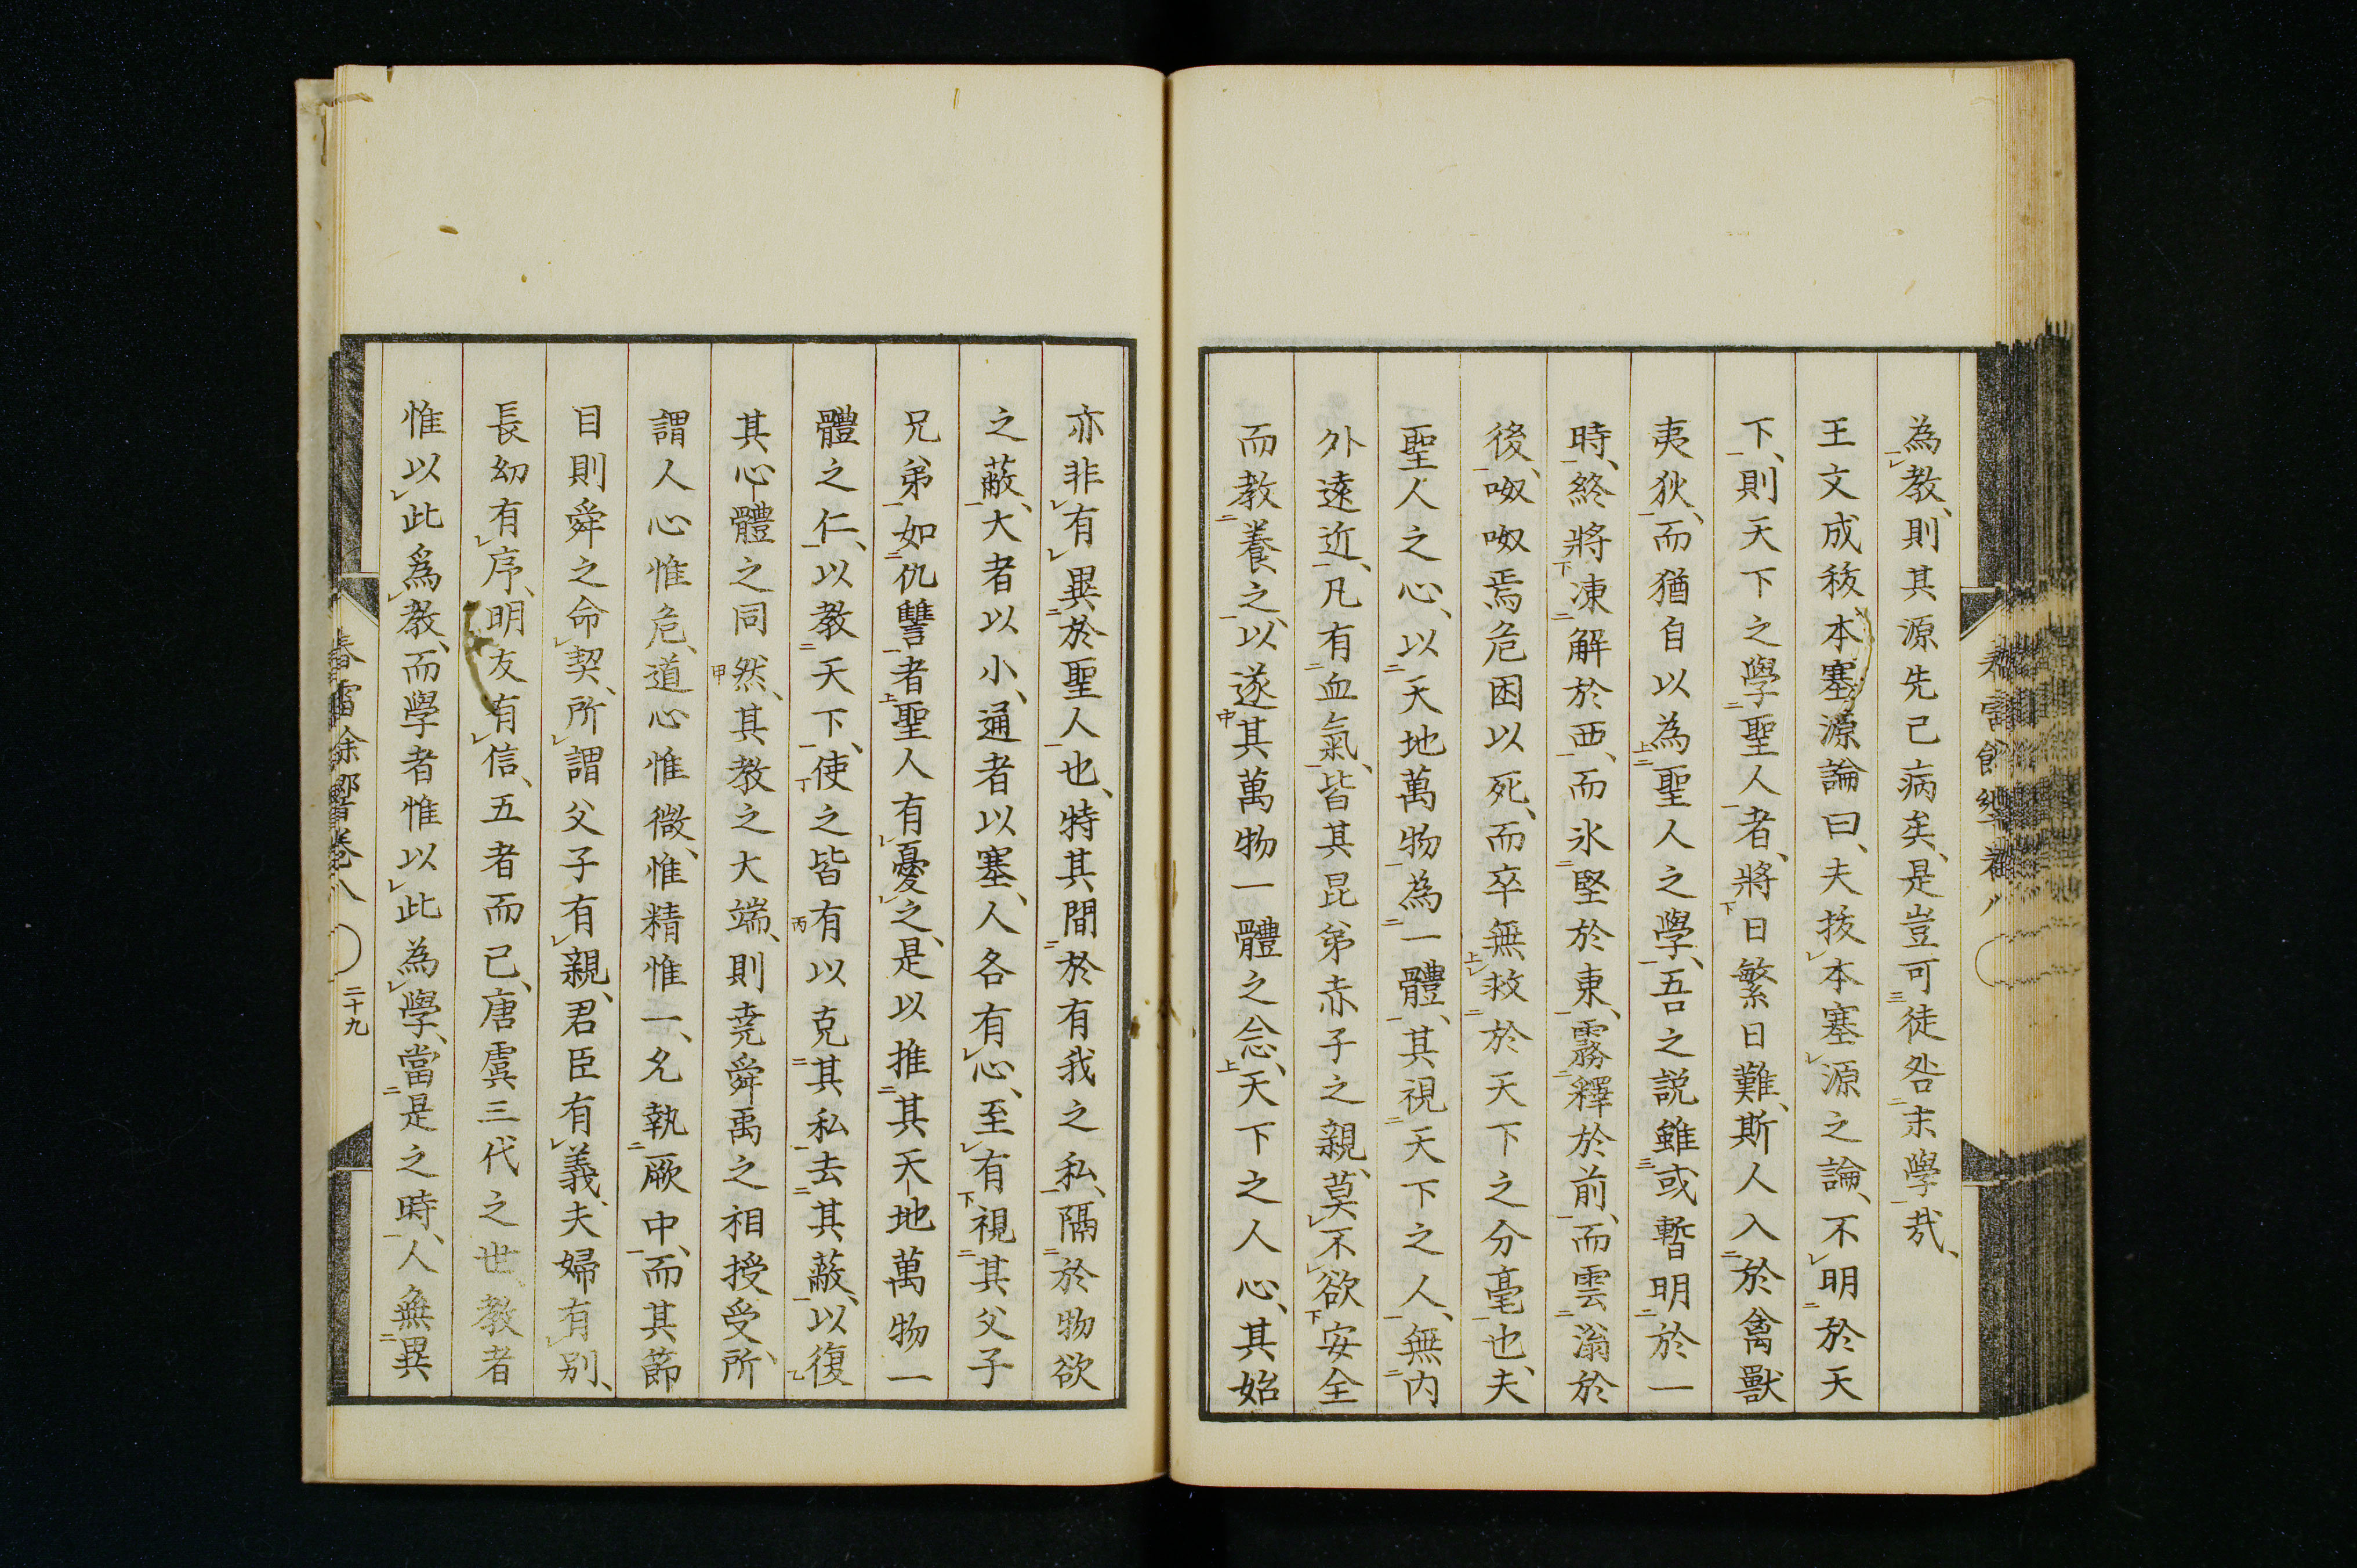 為教、則其源先已病矣、是豈可徒咎末學哉、
王文成秡本塞源論曰、夫拔本塞源之論、不明於天
下、則天下之學聖人者、將日繁日難、斯人入於禽獸
夷狄、而猶自以為聖人之學、吾之説雖或暫明於一
時、終將凍解於西、而氷堅於東、霧釋於前、而雲滃於
後、呶呶焉危困以死、而卒無救於天下之分毫也、夫
聖人之心、以天地萬物為一體、其視天下之人、無内
外遠近、凡有血氣、皆其昆弟赤子之親、莫不欲安全
而教養之、以遂其萬物一體之念、天下之人心、其始
亦非有異於聖人也、特其間於有我之私、隔於物欲
之蔽、大者以小、通者以塞、人各有心、至有視其父子
兄弟如仇讐者、聖人有憂之、是以推其天地萬物一
體之仁、以教天下、使之皆有以克其私去其蔽、以復
其心體之同然、其教之大端、則堯舜禹之相授受、所
謂人心惟危、道心惟微、惟精惟一、允執厥中、而其節
目則舜之命契、所謂父子有親、君臣有義、夫婦有別、
長幼有序、朋友有信、五者而已、唐虞三代之世、教者
惟以此爲教、而學者惟以此為學、當是之時、人無異
春雷餘響卷八
二十九